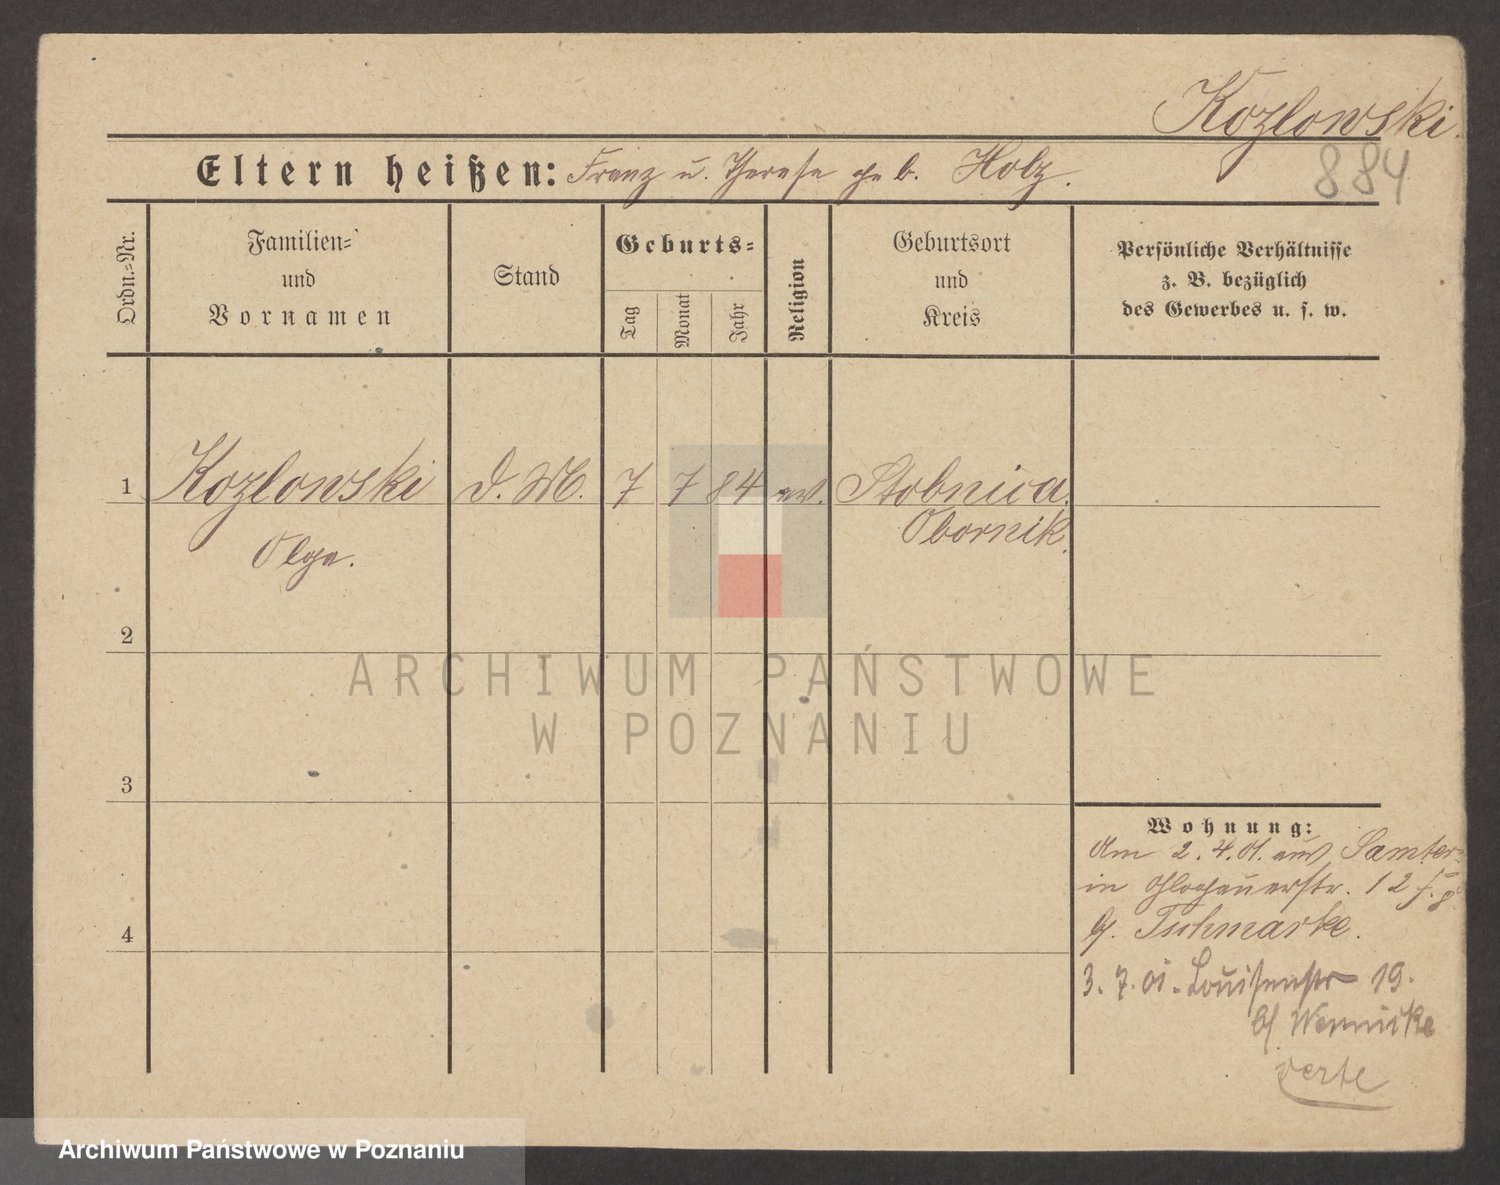 Kozlowski.
884
Eltern heißen: Franz u. Therese geb. Holz.
Ordn.-Nr.
Familien-
und
Vornamen
Stand
Geburts-
Tag
Monat
Jahr
Religion
Geburtsort
und
Kreis
Persönliche Verhältnisse
z. B. bezüglich
des Gewerbes u. s. w.
1 Kozlowski D. M. 7 7 84 ev. Stobnica.
Obornik.
Olga.
2
ARCHIWUM PAŃSTWOWE
W POZNANIU
3
Wohnung:
Am 2. 4. 01. aus Samter
in Glogauerstr. 12
b/. Tschmarke.
4
3. 7. 01. Louisenstr 19.
b/ Wernicke
verte
Archiwum Państwowe w Poznaniu